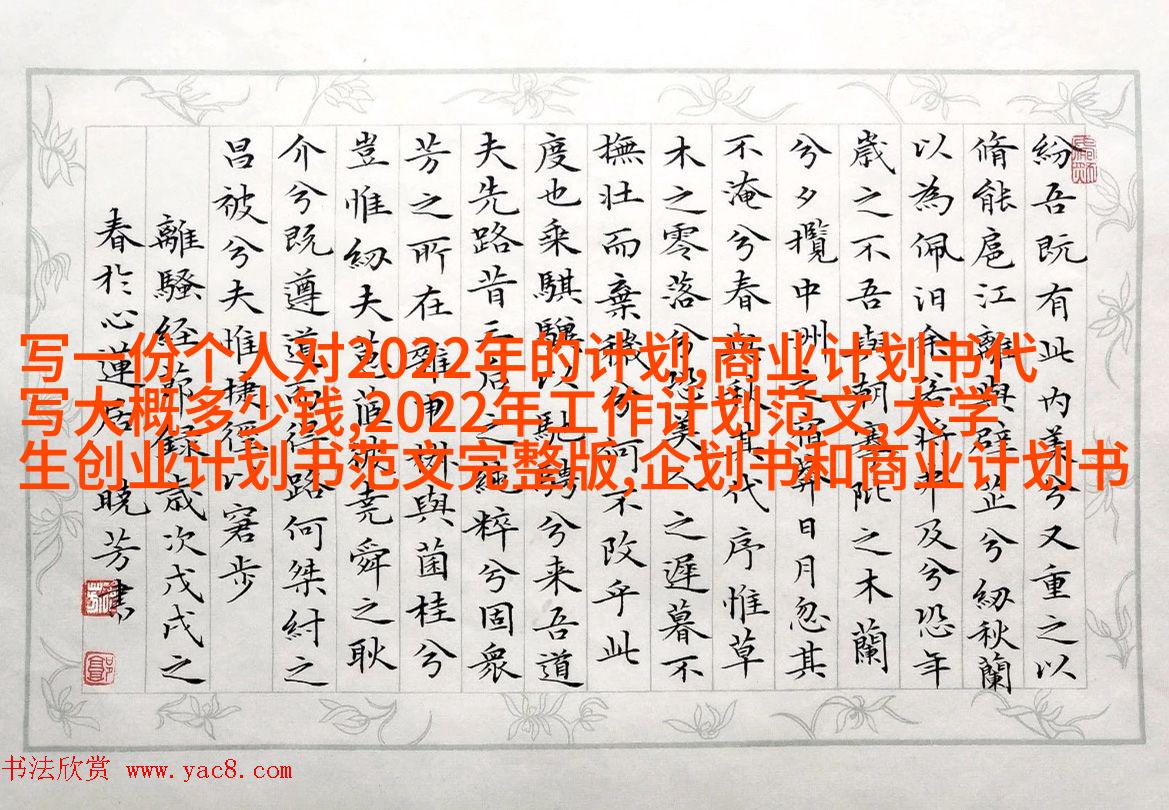 紛吾既有此内美兮又重之以
脩能扈江離與辟芷兮紉秋蘭
以為佩汨余若將不及兮恐年
歲之不吾與朝搴阰之木蘭
兮夕攬中洲之宿莽日月忽其
不淹兮春與秋其代序惟草
木之零落兮恐美人之遲暮不
撫壯而棄穢兮何不改乎此
度也乘騏驥以馳騁兮来吾道
夫先路昔三后之純粹兮固衆
芳之所在雜申椒與菌桂兮
豈惟紉夫蕙茝彼堯舜之耿
介兮既遵道而得路何桀紂之
昌被兮夫惟捷徑以窘步
離騷経節錄歲次戊戌之
春於心蓮居曉芳書
写一份个人对2022年的计划,商业计划书代
写大概多少钱,2022年工作计划范文,大学
生创业计划书范文完整版,企划书和商业计划书
书法欣赏 www.yac8.com